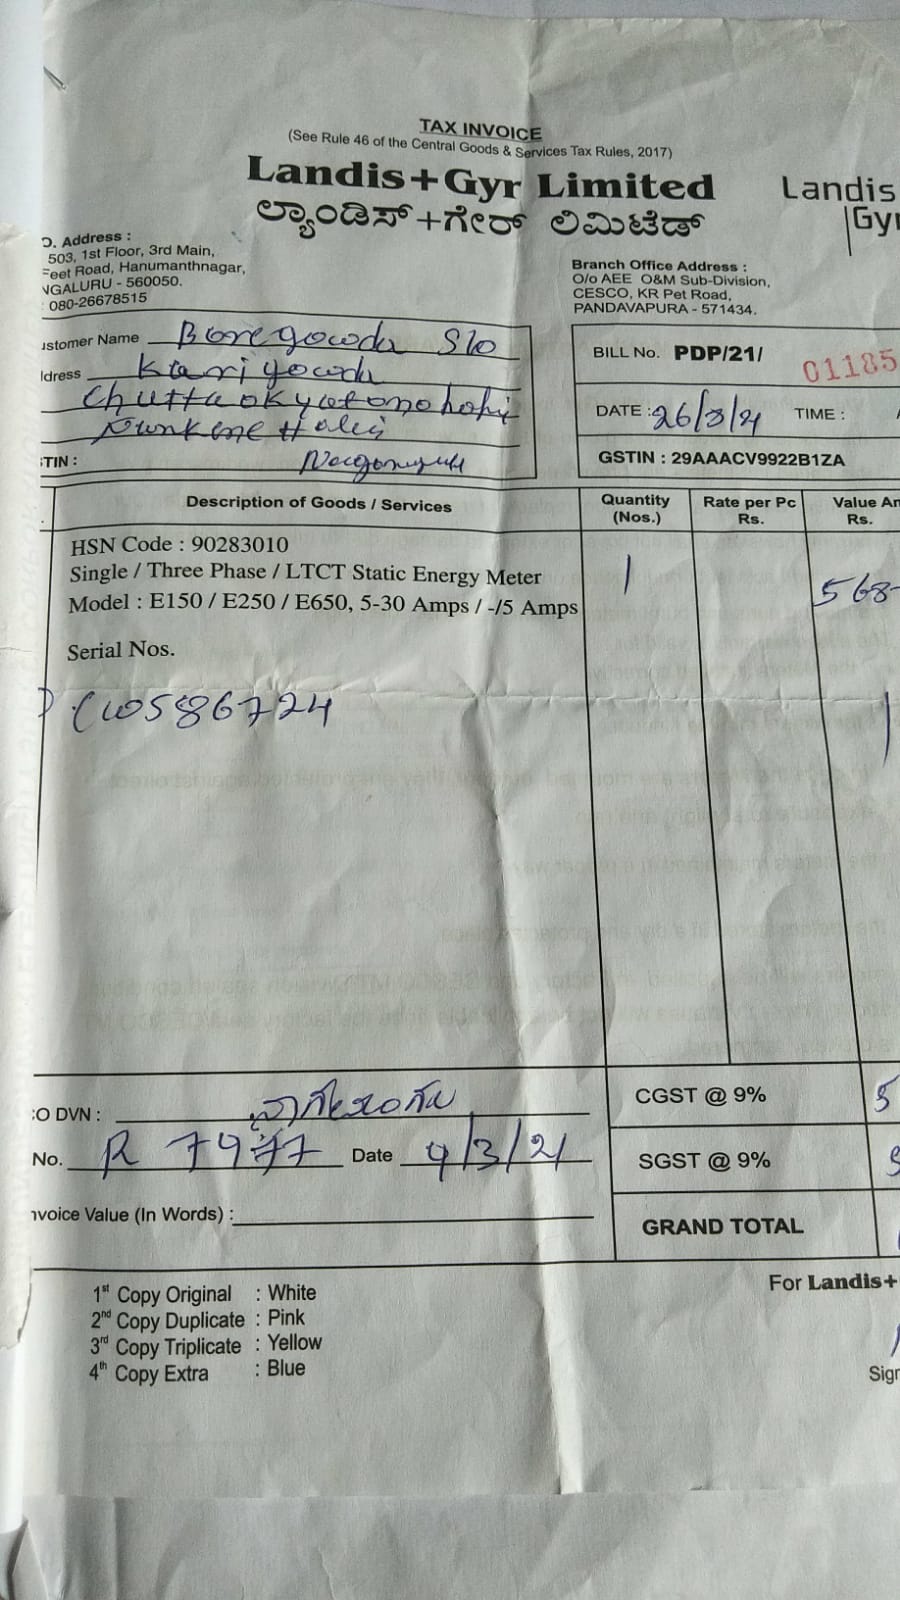 TAX INVOICE
(See Rule 46 of the Central Goods & Services Tax Rules, 2017)
Landis+Gyr Limited
ಲ್ಯಾಂಡಿಸ್+ಗೇರ್ ಲಿಮಿಟೆಡ್
Landis
Gyr
O. Address :
503, 1st Floor, 3rd Main,
Feet Road, Hanumanthnagar,
NGALURU - 560050.
: 080-26678515
Branch Office Address :
O/o AEE O&M Sub-Division,
CESCO, KR Pet Road,
PANDAVAPURA - 571434.
ustomer Name Boregowda S/o
ddress Kariyowda
BILL No. PDP/21/ 01185
DATE : 26/3/21 TIME :
STIN :
GSTIN : 29AAACV9922B1ZA
Description of Goods / Services
Quantity (Nos.)
Rate per Pc Rs.
Value Am Rs.
HSN Code : 90283010
Single / Three Phase / LTCT Static Energy Meter
Model : E150 / E250 / E650, 5-30 Amps / -/5 Amps
1
568-
Serial Nos.
5586724
CO DVN :
No. R 7977 Date 4/3/21
nvoice Value (In Words) :
CGST @ 9% 5
SGST @ 9%
GRAND TOTAL
For Landis+
1st Copy Original : White
2nd Copy Duplicate : Pink
3rd Copy Triplicate : Yellow
4th Copy Extra : Blue
Sign